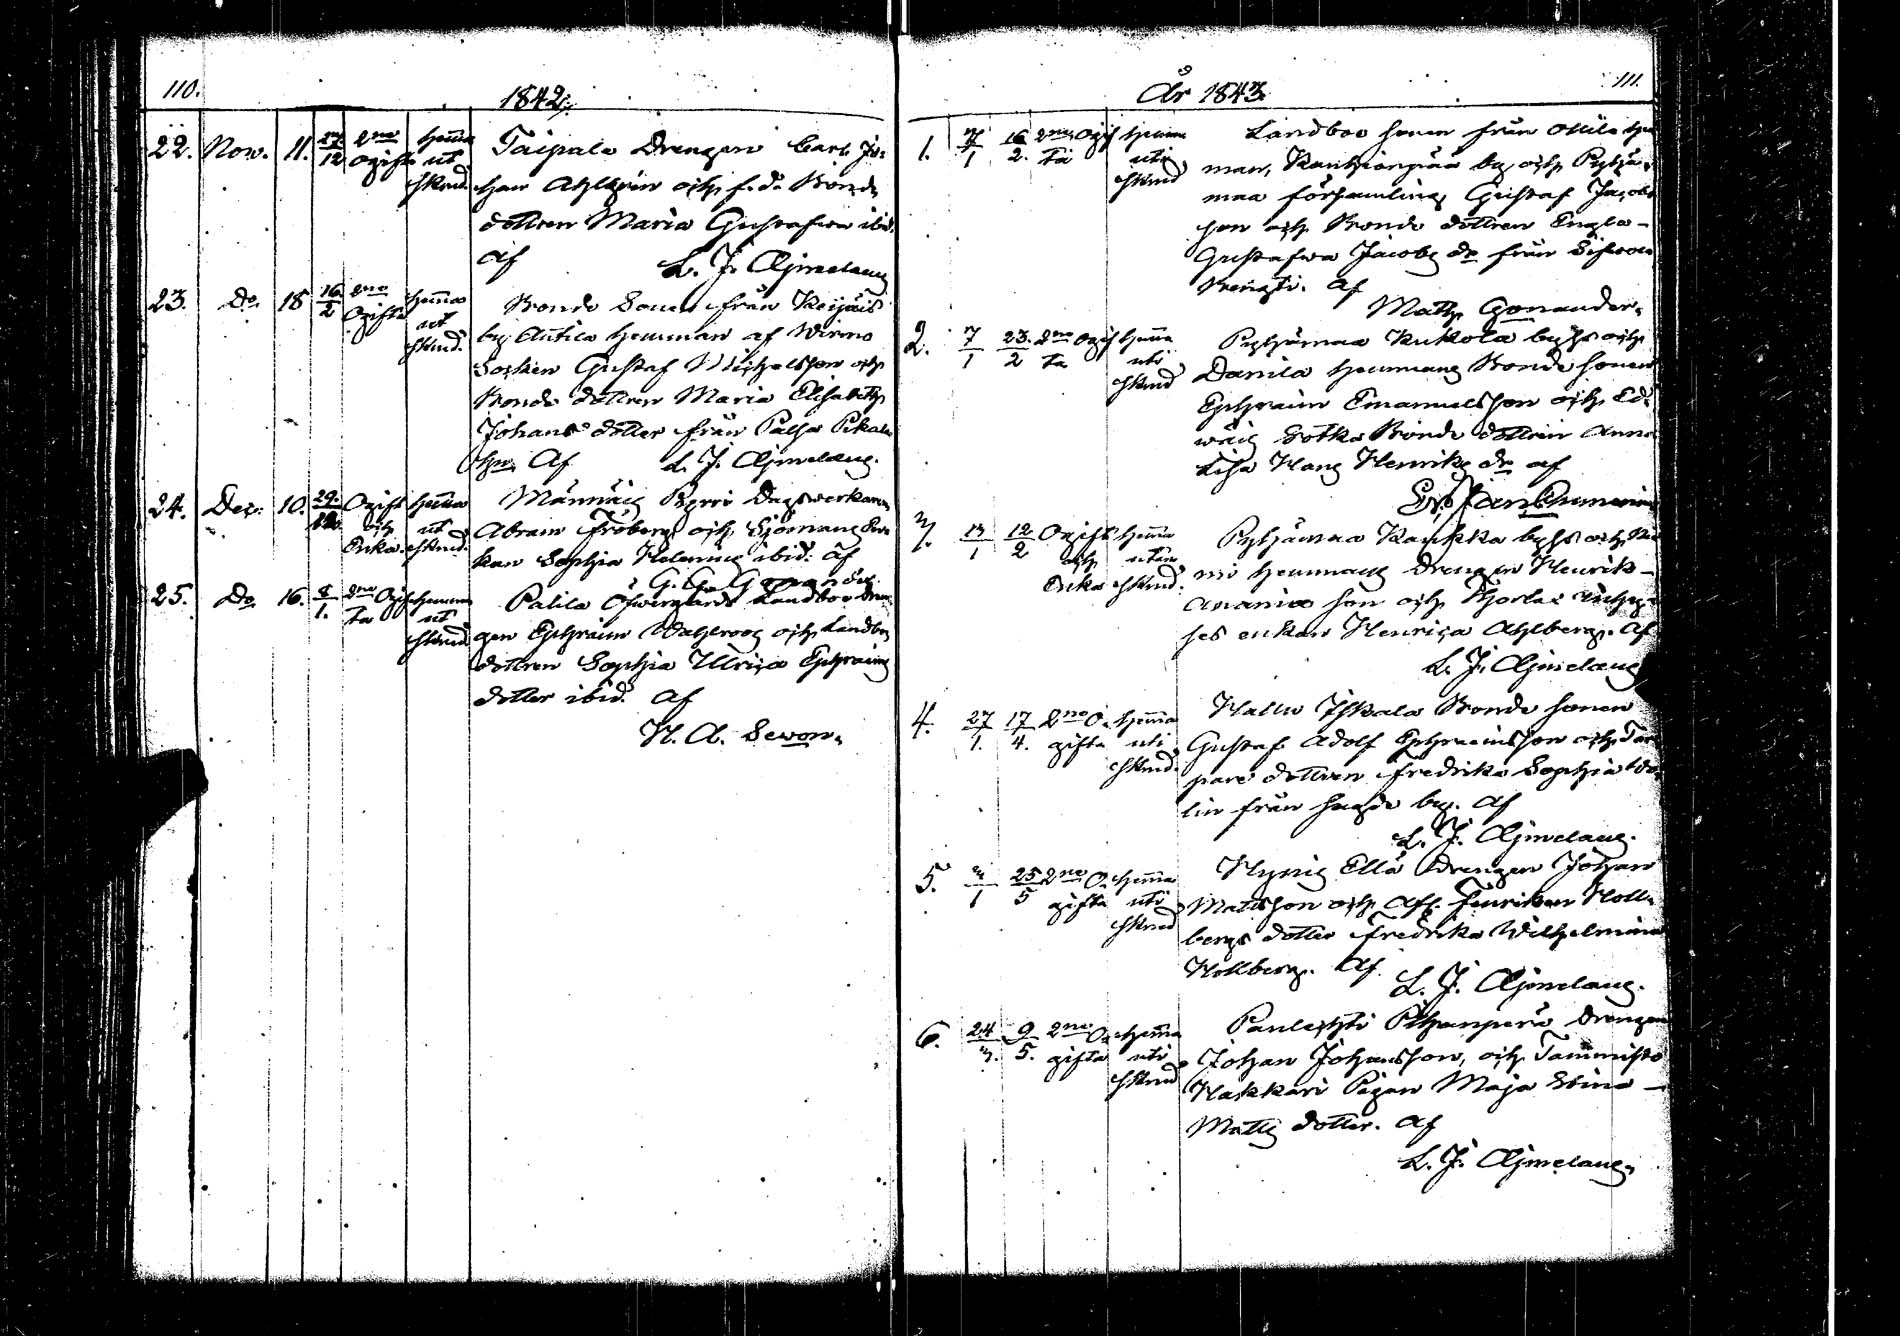 110.
1842.
22. Nov. 11. 27/12 2ne Ogifta hemma ut Sknd. Taipale Drengen Carl Jo-
han Ahlgrén och f.d. Bonde
dottren Maria Gustafva ibid.
af
L. J. Äjmelaeus
23. Do 18 16/2 2ne Ogifta hemma ut Sknd. Bonde Sonen från
by Anttila hemman af Wirmo
Socken Gustaf Michelsson och
Bonde dottren Maria Elisabeth
Johans dotter från
af L. J. Äjmelaeus.
24. Dec. 10. 29/12 Ogift och Enka hemma ut Sknd. Männäis Dagsverkaren
Abram Fröberg och Sjömans En-
kan Sophia Helenius ibid. af
25. Do 16. 8/1. 2ne Ogifta hemma ut Sknd. Palila Öfvergårds Landbo Dren-
gen Ephraim Wahlroos och Landbo
dottren Sophia Ulrica Ephraims
dotter ibid. af
H. A. Sevon.
111.
År 1843.
1. 7/1 16/2. 2ne Ogifta hemma uti Sknd Landbo sonen från hem-
man, by och Pyhä-
maa församling Gustaf Jacobs
son och Bonde dottren Engla
Gustafva Jacobs dr från
af
Math. Gonander.
2. 7/1 23/2 2ne Ogifta hemma uti Sknd Pyhämaa Kukola by och
Danila hemmans Bonde sonen
Ephraim Emanuelsson och
Bonde dottren Anna
Lisa Hans Henriks dr af
3. 13/1 12/2 Ogift och Enka hemma utan Sknd. Pyhämaa Kaukka by och
hemmans Drengen Henrik
Ananias son och
enkan Henrica Ahlberg. af
L. J. Äjmelaeus
4. 27/1. 17/4. 2ne Ogifta hemma uti Sknd. Hallu Iskala Bonde sonen
Gustaf Adolf Ephraimsson och Tor-
pare dottren Fredrika Sophia
lin från by. af
L. J. Äjmelaeus.
5. 3/1 25/5 2ne Ogifta hemma uti Sknd Ellä Drengen Johan
Mattsson och afl. Hall-
bergs dotter Fredrika Wilhelmina
Hallberg. af
L. J. Äjmelaeus.
6. 24/3. 9/5. 2ne Ogifta hemma uti Sknd Drengen
Johan Johansson, och Tammisto
Hakkari Pigan Maja Stina
Matts dotter. af
L. J. Äjmelaeus.